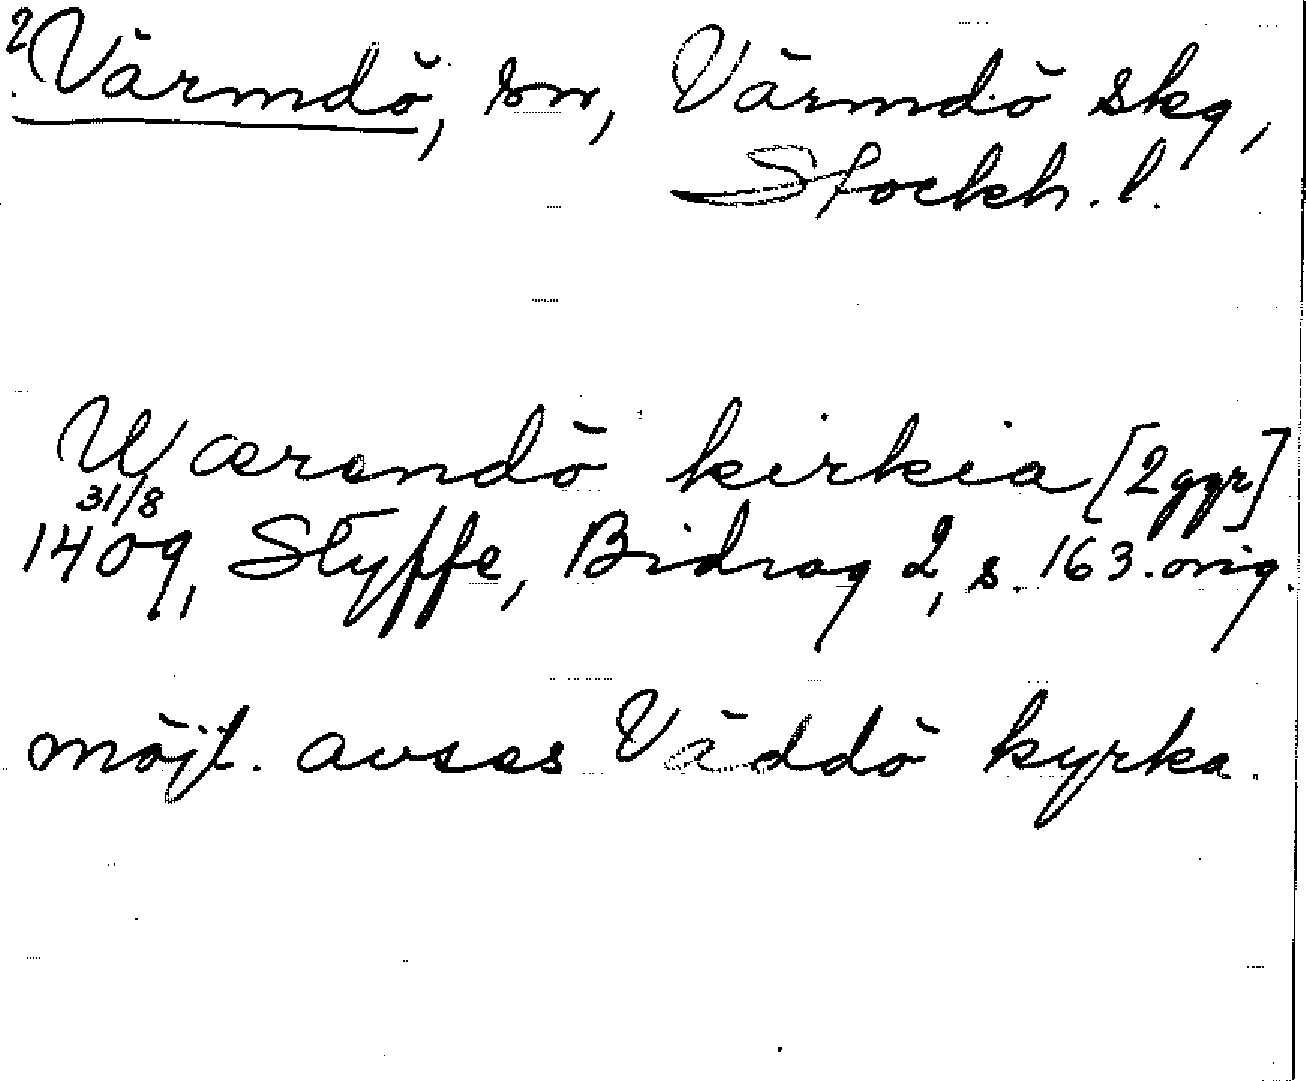 ? Värmdö, sn, Värmdö skg,
Stockh. l.
Wærendö kirkia [2 ggr]
31/8
1409, Styffe, Bidrag 2, s. 163. orig.
möjl. avses Väddö kyrka.